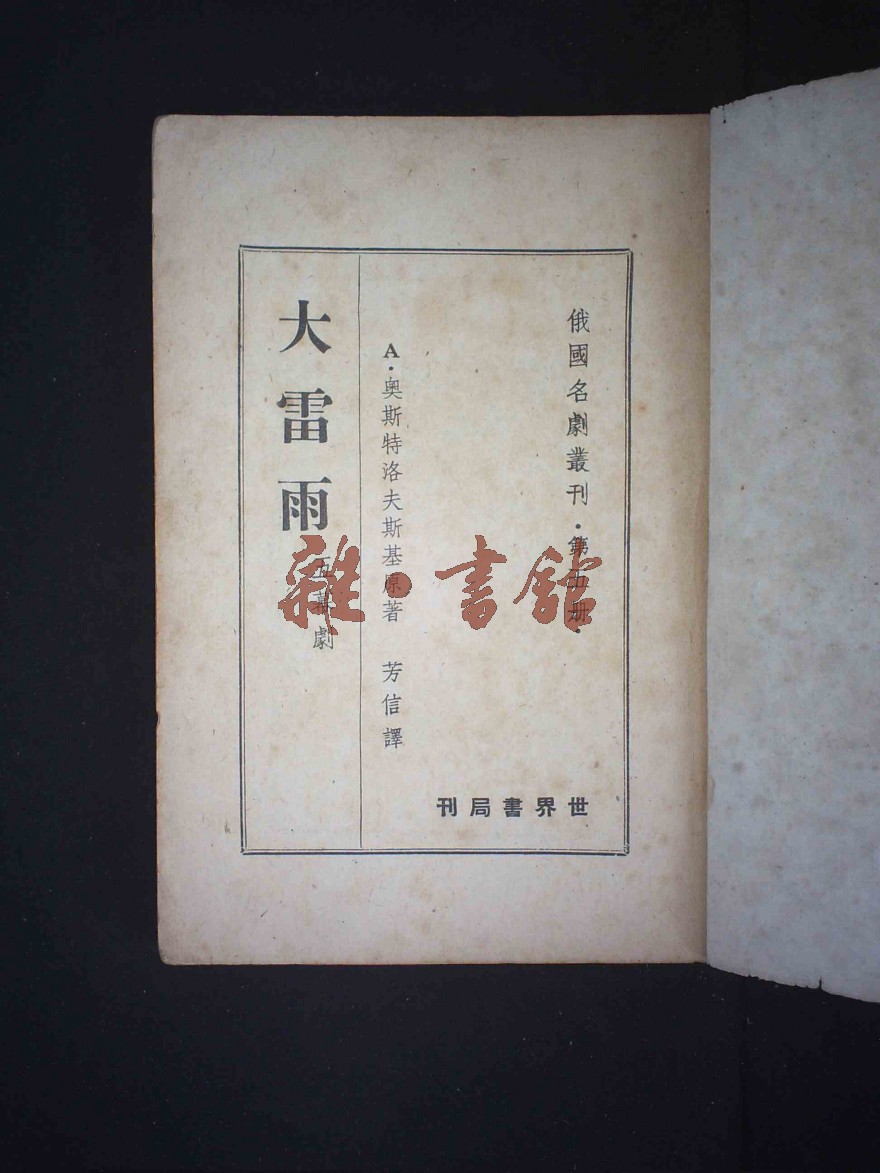 俄國名劇叢刊·第五册·
A·奧斯特洛夫斯基原著　芳信譯
大雷雨
五幕劇
世界書局刊
雜·書館